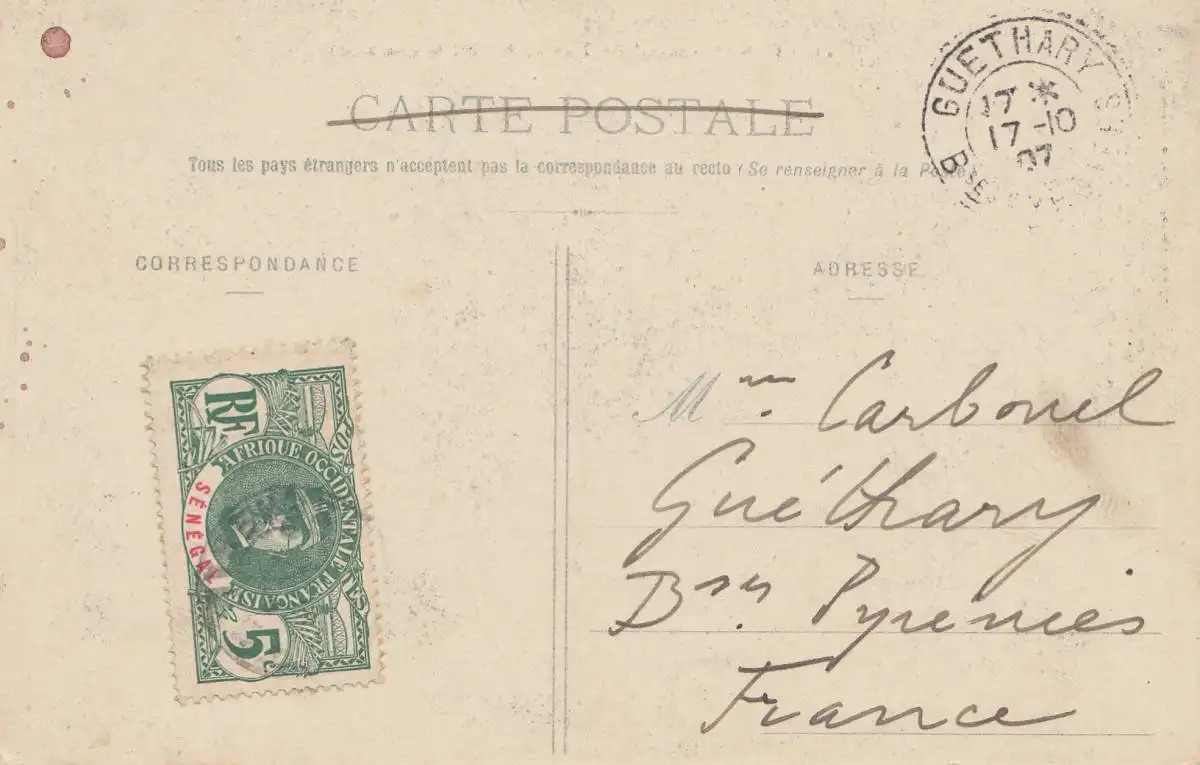 CARTE POSTALE
Tous les pays étrangers n'acceptent pas la correspondance au recto (Se renseigner à la Poste)
CORRESPONDANCE
ADRESSE
GUETHARY
17 *
17-10
07
Bses
RF
POSTES
AFRIQUE OCCIDENTALE FRANÇAISE
SÉNÉGAL
5c
Mme. Carbonel
Guéthary
Bses. Pyrenees
France